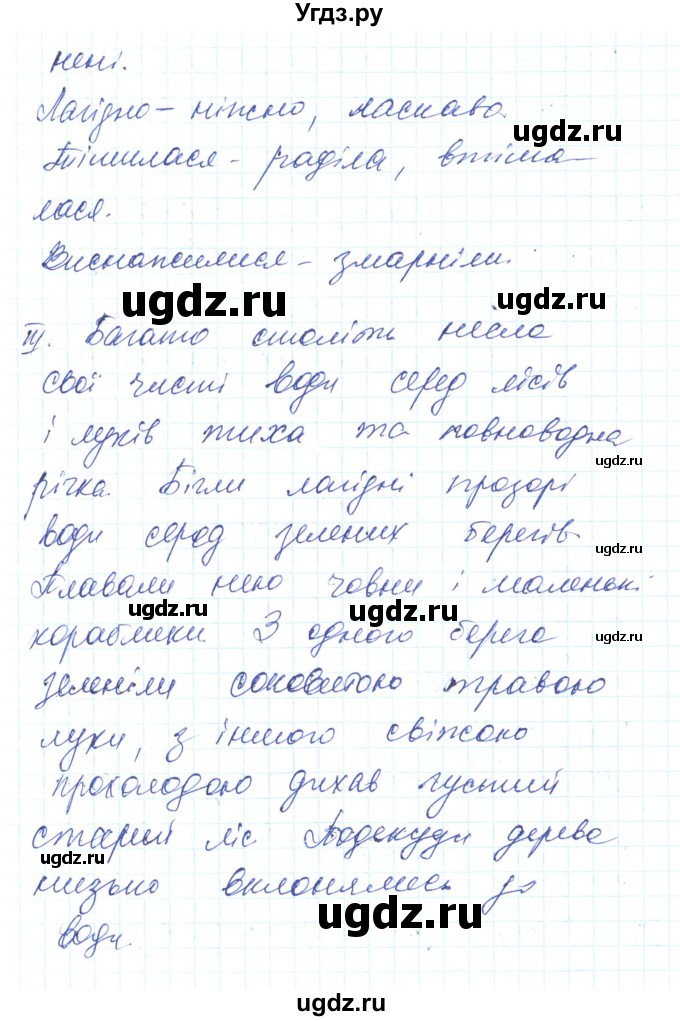 Угдз.ру
нені.
Лагідно – ніжно, ласкаво
ugdz.ru
Тішилася – раділа, втіша
лася.
Виснажилися – змарніли.
ugdz.ru
ugdz.ru
III. Багато століть несла
свої чисті води серед лісів
і луків тиха та повноводна
ugdz.ru
річка. Бігли лагідні прозорі
води серед зелених берегів.
ugdz.ru
Плавали нею човни і маленькі
ugdz.ru
ugdz.ru
кораблики З одного берега
ugdz.ru
зеленіли соковитою травою
луки, з іншого свіжою
прохолодою дихав густий
старий ліс Подекуди дерева
ugdz.ru
низько вклонялись до
ugdz.ru
води.
ugdz.ru